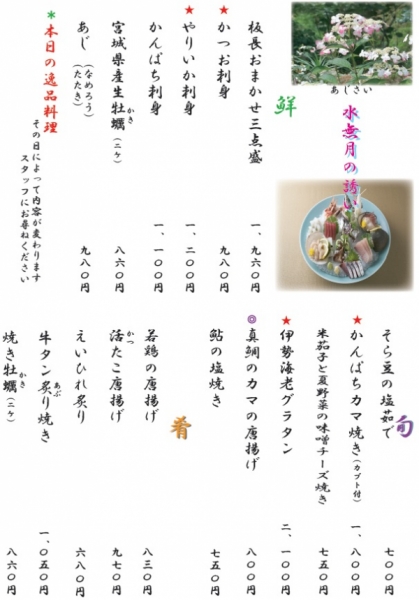 あじさい
水無月の誘い
鮮
板長おまかせ三点盛 一、九六〇円
★かつお刺身 九八〇円
★やりいか刺身 一、二〇〇円
かんぱち刺身 一、一〇〇円
宮城県産生牡蠣(ニケ) 八六〇円
かき
あじ(なめろう)(たたき) 九八〇円
*本日の逸品料理
その日によって内容が変わります
スタッフにお尋ねください
旬
そら豆の塩茹で 七〇〇円
★かんぱちカマ焼き(カブト付) 一、八〇〇円
米茄子と夏野菜の味噌チーズ焼き 七五〇円
★伊勢海老グラタン 二、一〇〇円
◎真鯛のカマの唐揚げ 八〇〇円
鮎の塩焼き 七五〇円
肴
若鶏の唐揚げ 八三〇円
活たこ唐揚げ 九七〇円
かつ
えいひれ炙り 六八〇円
牛タン炙り焼き 一、〇五〇円
あぶ
焼き牡蠣(ニケ) 八六〇円
かき